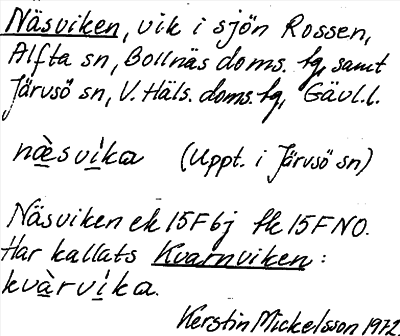 Näsviken, vik i sjön Rossen,
Alfta sn, Bollnäs doms. tg, samt
Järvsö sn, V. Häls. doms. tg, Gävl. l.
næ̀svíka (Uppt. i Järvsö sn)
Näsviken ek 15F6j fk 15F NO.
Har kallats Kvarnviken:
kvàrvíka.
Kerstin Mickelsson 1972.